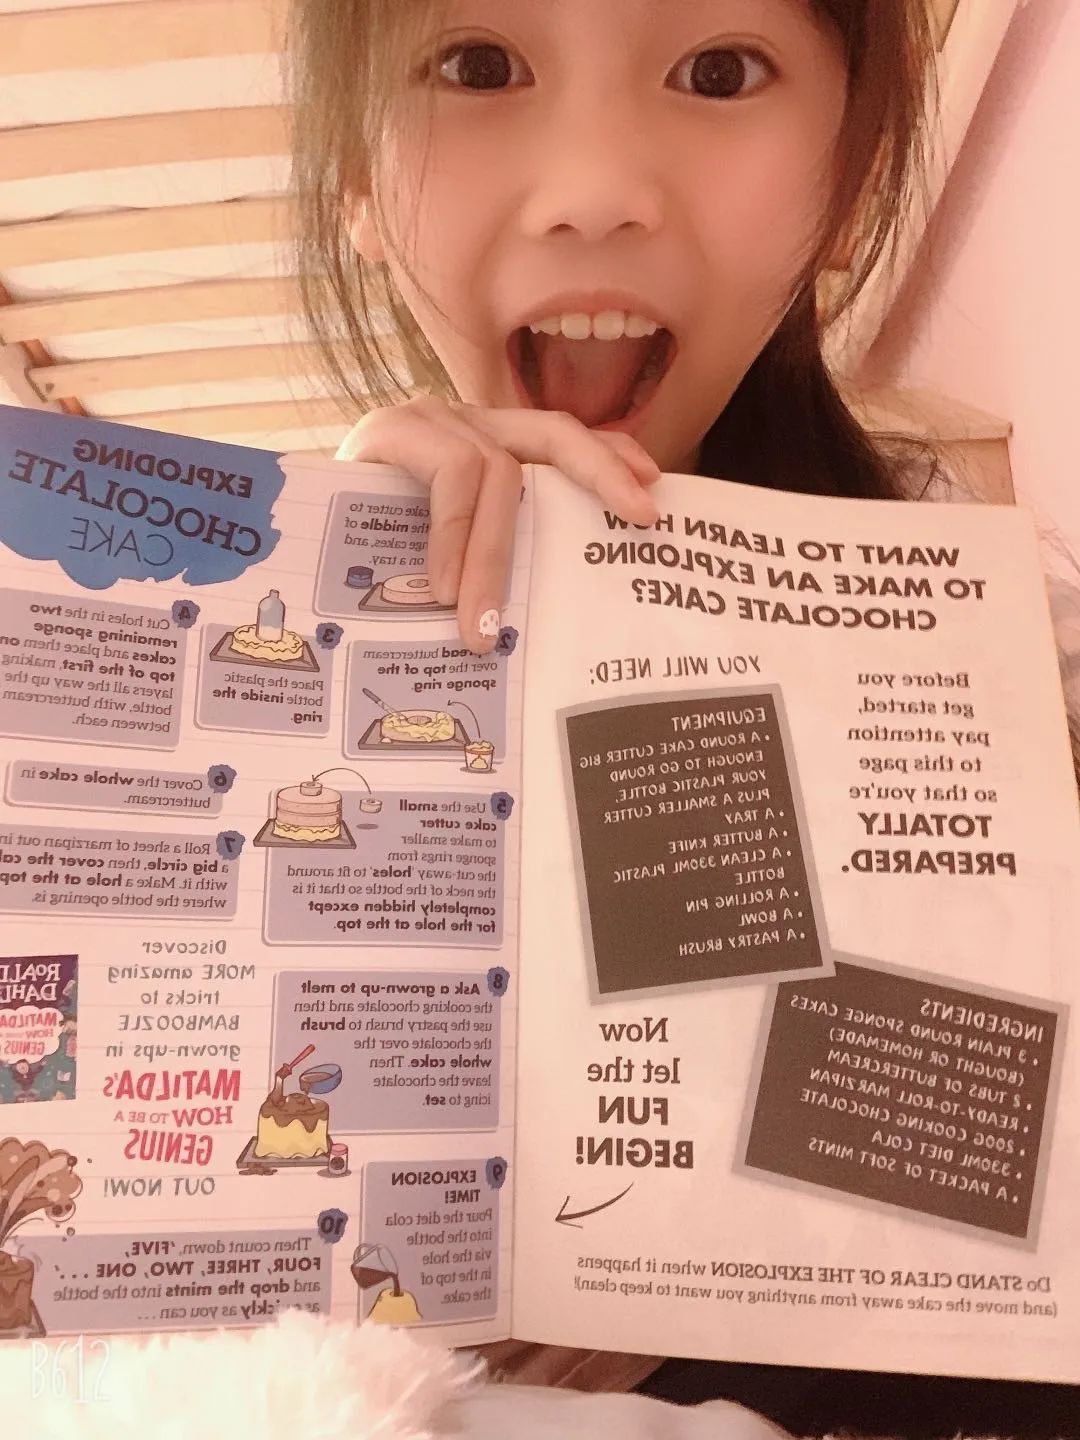 WANT TO LEARN HOW
TO MAKE AN EXPLODING
CHOCOLATE CAKE?
Before you
get started,
pay attention
to this page
so that you're
TOTALLY
PREPARED.
YOU WILL NEED:
EQUIPMENT
• A ROUND CAKE CUTTER BIG
ENOUGH TO GO ROUND
YOUR PLASTIC BOTTLE,
PLUS A SMALLER CUTTER
• A TRAY
• A BUTTER KNIFE
• A CLEAN 330ML PLASTIC
BOTTLE
• A ROLLING PIN
• A BOWL
• A PASTRY BRUSH
INGREDIENTS
• 3 PLAIN ROUND SPONGE CAKES
(BOUGHT OR HOMEMADE)
• 2 TUBS OF BUTTERCREAM
• READY-TO-ROLL MARZIPAN
• 200G COOKING CHOCOLATE
• 330ML DIET COLA
• A PACKET OF SOFT MINTS
Now
let the
FUN
BEGIN!
Do STAND CLEAR OF THE EXPLOSION when it happens
(and move the cake away from anything you want to keep clean!)
EXPLODING
CHOCOLATE
CAKE
cake cutter to
the middle of
cakes, and
on a tray.
2
Spread buttercream
over the top of the
sponge ring.
3
Place the plastic
bottle inside the
ring.
4
Cut holes in the two
remaining sponge
cakes and place them on
top of the first, making
layers all the way up the
bottle, with buttercream
between each.
5 Use the small
cake cutter
to make smaller
sponge rings from
the cut-away 'holes' to fit around
the neck of the bottle so that it is
completely hidden except
for the hole at the top.
6 Cover the whole cake in
buttercream.
7 Roll a sheet of marzipan out in
a big circle, then cover the
with it. Make a hole at the top
where the bottle opening is.
8 Ask a grown-up to melt
the cooking chocolate and then
use the pastry brush to brush
the chocolate over the
whole cake. Then
leave the chocolate
icing to set.
9 EXPLOSION
TIME!
Pour the diet cola
into the bottle
via the hole
in the top of
the cake.
10 Then count down, 'FIVE,
FOUR, THREE, TWO, ONE . . .'
and drop the mints into the bottle
as quickly as you can . . .
Discover
MORE amazing
tricks to
BAMBOOZLE
grown-ups in
MATILDA's
HOW TO BE A
GENIUS
OUT NOW!
ROALD
DAHL
MATILDA'S
HOW
GENIUS
B612